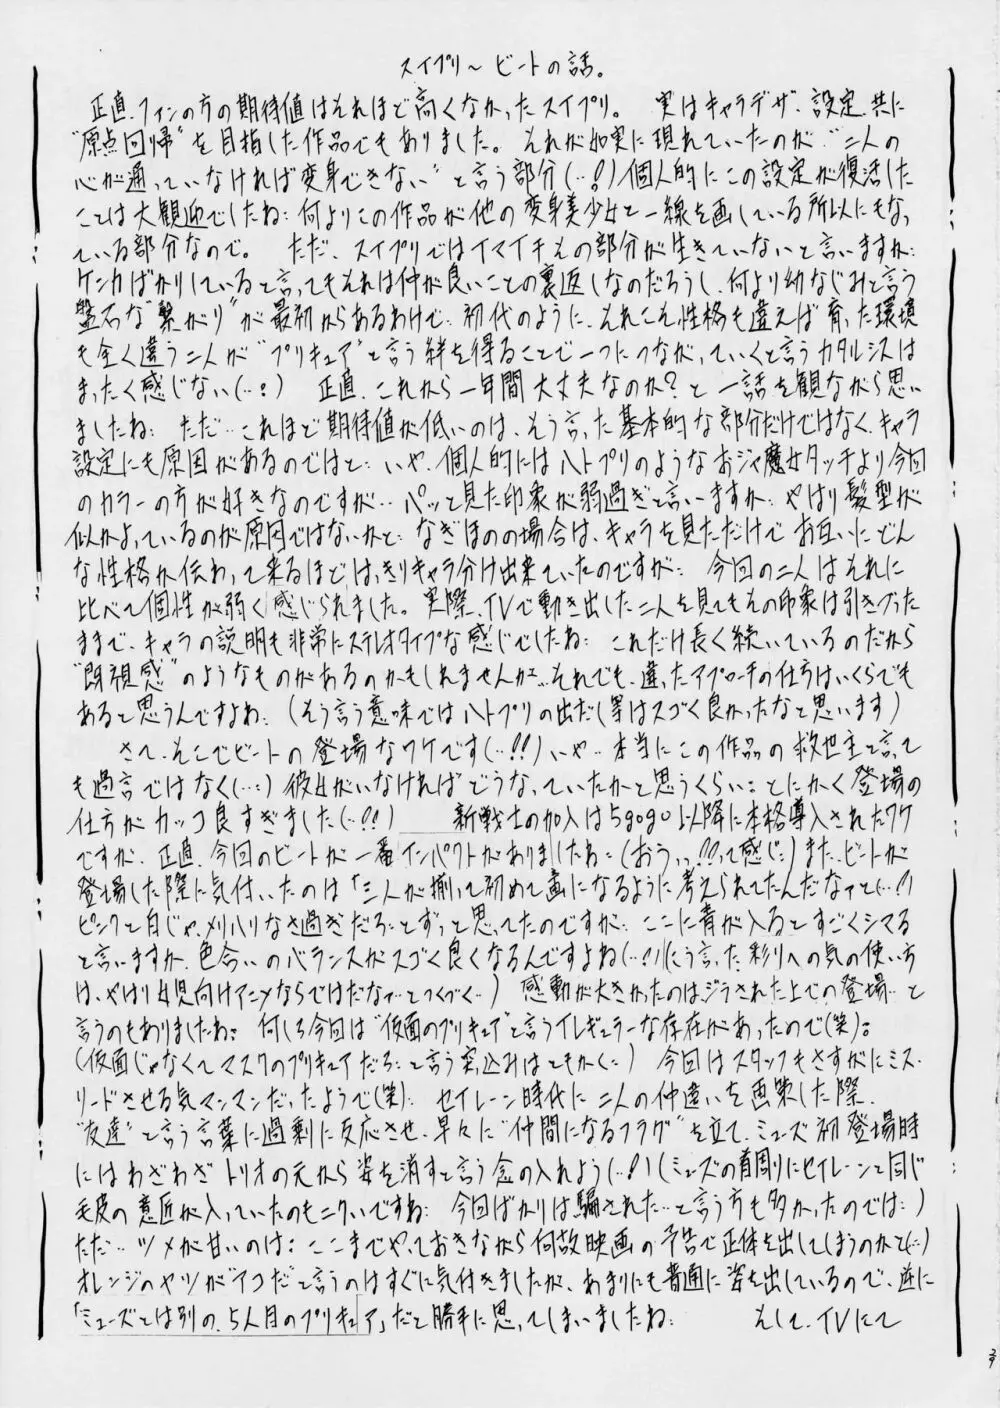 スイプリ～ ビートの話。
正直、ファンの方の期待値はそれほど高くなかったスイプリ。 実はキャラデザ、設定、共に
"原点回帰"を目指した作品でもありました。それが如実に現れていたのが、"二人の
心が通っていなければ変身できない"と言う部分(…!)個人的にこの設定が復活した
ことは大観迎でしたね…何よりこの作品が他の変身美少女と一線を画している所以にもなっ
ている部分なので。 ただ、スイプリではイマイチその部分が生きていないと言いますか…
ケンカばかりしていると言ってもそれは仲が良いことの裏返しなのだろうし、何より幼なじみと言う
盤石な"繋がり"が最初からあるわけで…初代のように、それこそ性格も違えば育った環境
も全く違う二人が"プリキュア"と言う絆を得ることで一つにつながっていくと言うカタルシスは
まったく感じない(…!) 正直、これから一年間大丈夫なのか?と一話を観ながら思い
ましたね… ただ…これほど期待値が低いのは、そう言った基本的な部分だけではなく、キャラ
設定にも原因があるのではと… いや、個人的にはハトプリのようなおジャ魔女タッチより今回
のカラーの方が好きなのですが… パッと見た印象が弱過ぎと言いますか… やはり髪型が
似かよっているのが原因ではないかと… なぎほのの場合は、キャラを見ただけでお互いにどん
な性格か伝わって来るほどはっきりキャラ分け出来ていたのですが… 今回の二人はそれに
比べて個性が弱く感じられました。実際、TVで動き出した二人を見てもその印象は引きずった
ままで、キャラの説明も非常にステレオタイプな感じでしたね… これだけ長く続いているのだから
"既視感"のようなものがあるのかもしれませんが…それでも、違ったアプローチの仕方はいくらでも
あると思うんですよね…(そう言う意味ではハトプリの出だし等はスゴく良かったなと思います)
さて、そこでビートの登場なワケです(…!!)いや…本当にこの作品の救世主と言って
も過言ではなく(…)彼女がいなければどうなっていたかと思うくらい、とにかく登場の
仕方がカッコ良すぎました(…!!) 新戦士の加入は5gogo以降に本格導入されたワケ
ですが、正直、今回のビートが一番インパクトがありましたね…(おうっ、!!って感じ…)また、ビートが
登場した際に気付いたのは「三人が揃って初めて画になるように考えられてたんだなァと(…!)
ピンクと白じゃ、メリハリなさ過ぎだろ…とずっと思ってたのですが… ここに青が入るとすごくシマる
と言いますか、色合いのバランスがスゴく良くなるんですよね(…!)(こう言った彩りへの気の使い方
は、やはり女児向けアニメならではだなァ…とつくづく…) 感動が大きかったのはジラされた上での登場…と
言うのもありましたね… 何しろ今回は"仮面のプリキュア"と言うイレギュラーな存在があったので(笑)。
(仮面じゃなくてマスクのプリキュアだろ…と言う突込みはともかく…) 今回はスタッフもさすがにミス・
リードさせる気マンマンだったようで(笑)… セイレーン時代に二人の仲違いを画策した際、
"友達"と言う言葉に過剰に反応させ、早々に"仲間になるフラグ"を立て、ミューズ初登場時
にはわざわざトリオの元から姿を消すと言う念の入れよう(…!)(ミューズの首周りにセイレーンと同じ
毛皮の意匠が入っていたのもニクいですね… 今回ばかりは騙された…と言う方も多かったのでは…)
ただ…ツメが甘いのは… ここまでやっておきながら何故映画の予告で正体を出してしまうのかと(…)
オレンジのヤツが"アコだ"と言うのはすぐに気付きましたが、あまりにも普通に姿を出しているので、逆に
「ミューズとは別の、5人目のプリキュア」だと勝手に思ってしまいましたね… そして、TVにて